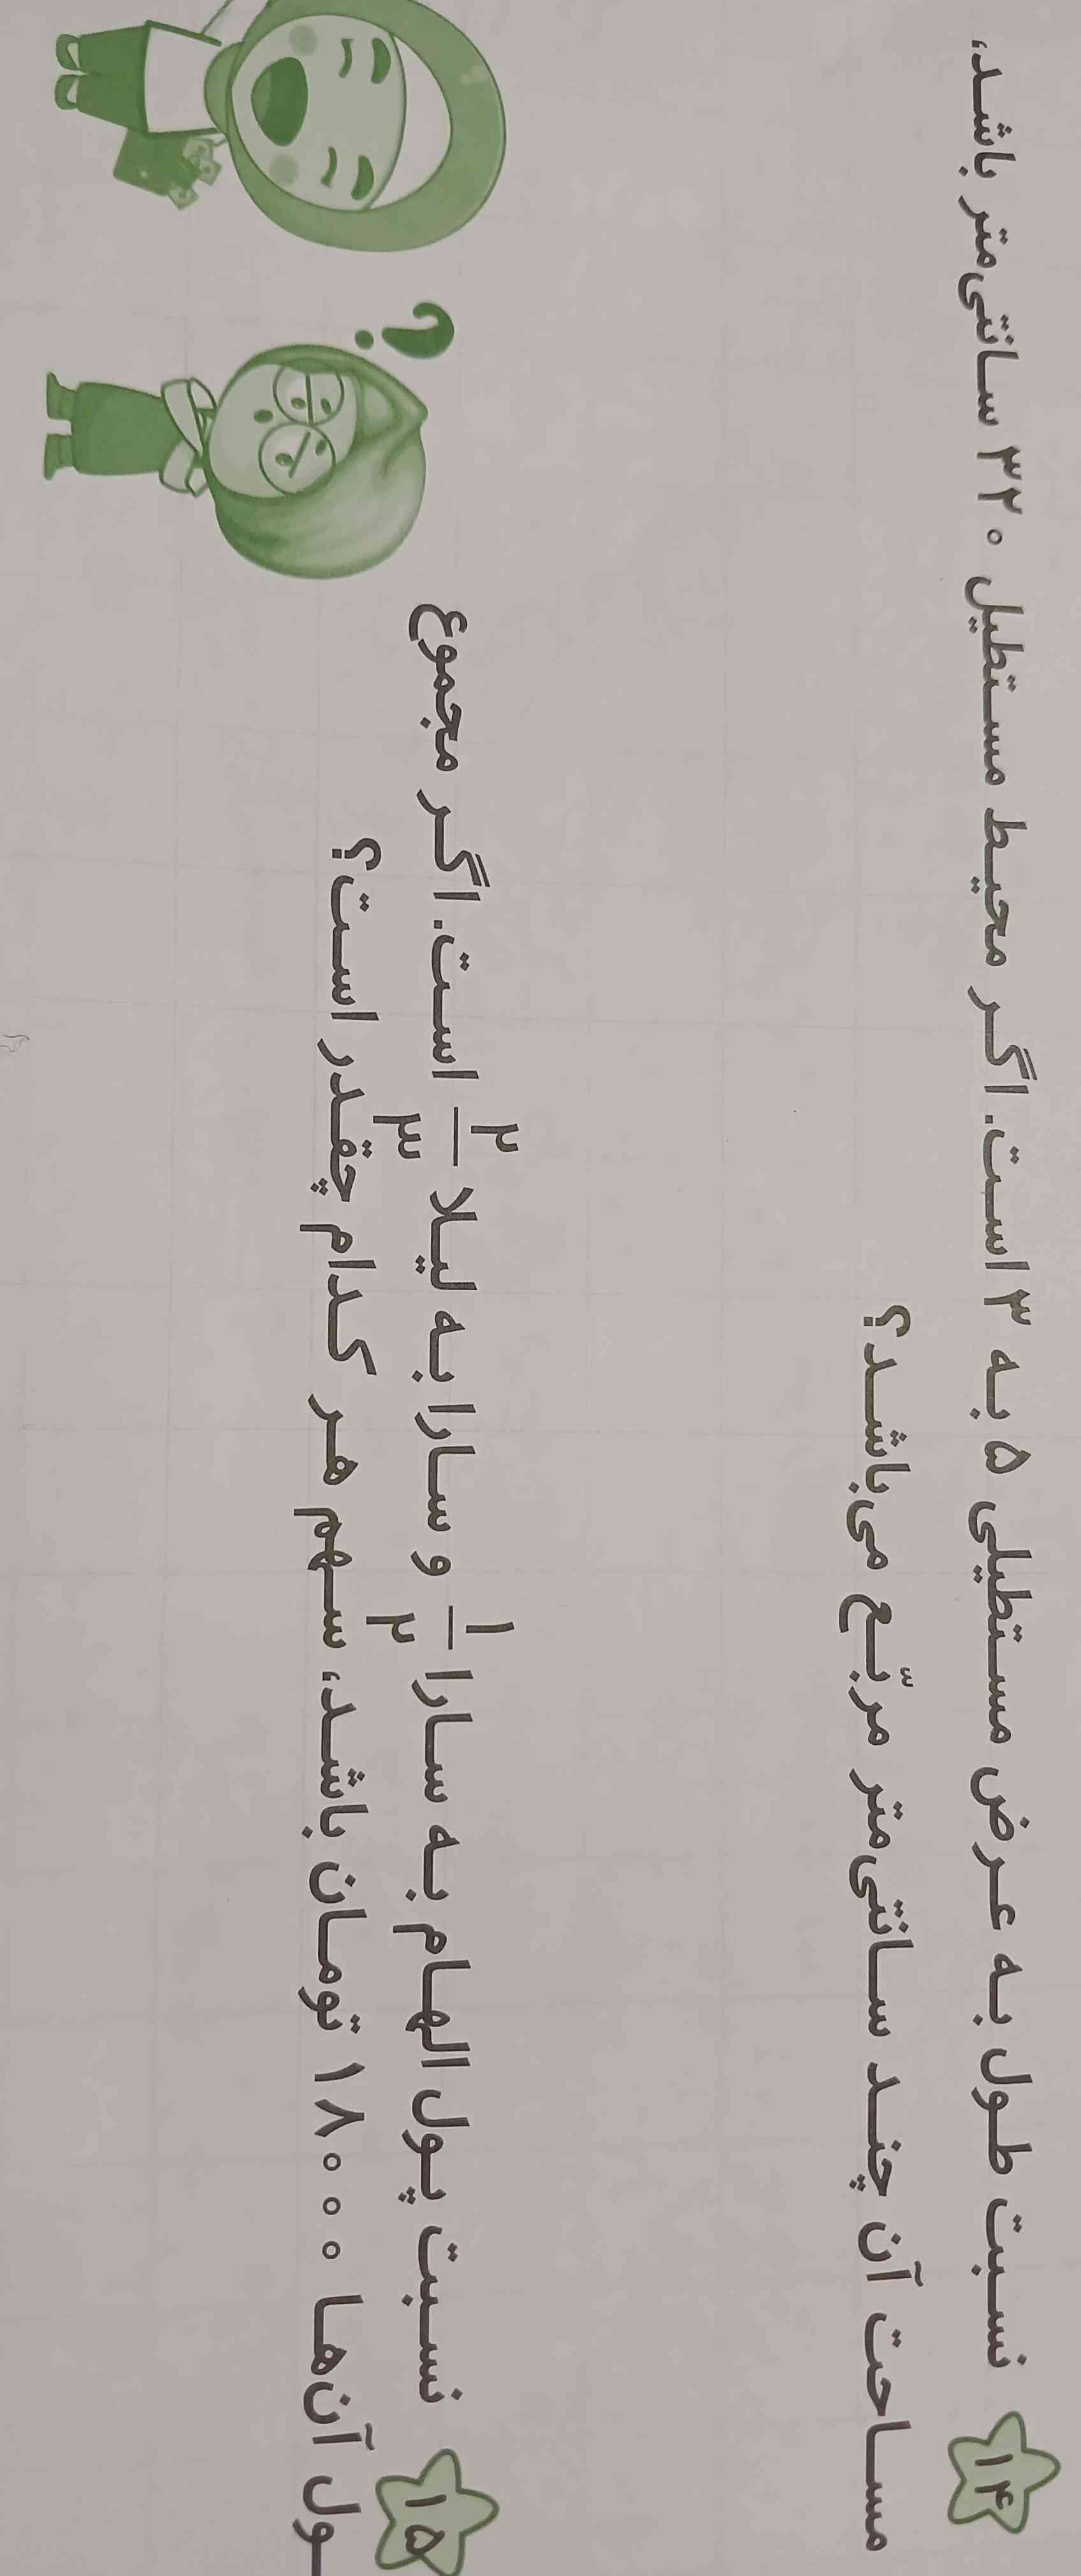 ۱۴ نسبت طول به عرض مستطیلی ۵ به ۳ است. اگر محیط مستطیل ۳۲۰ سانتی‌متر باشد،
مساحت آن چند سانتی‌متر مربّع می‌باشد؟
۱۵ نسبت پول الهام به سارا ۱/۲ و سارا به لیلا ۲/۳ است. اگر مجموع
ول آن‌ها ۱۸۰۰۰ تومان باشد، سهم هر کدام چقدر است؟
؟